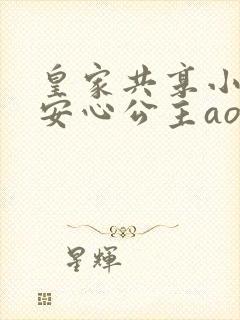 皇家共享小
安心公主ao
星輝